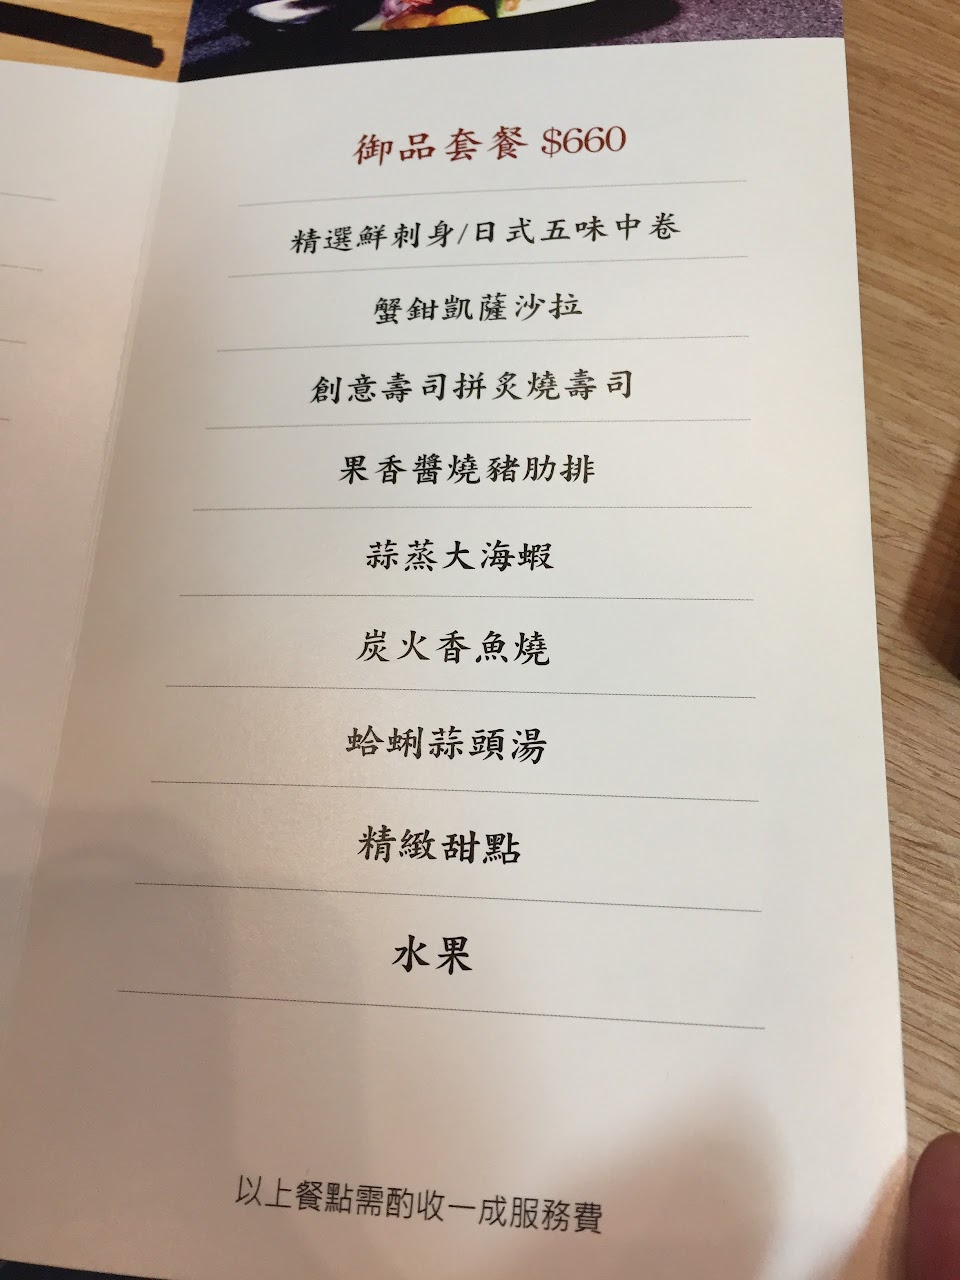 御品套餐 $660
精選鮮刺身/日式五味中卷
蟹鉗凱薩沙拉
創意壽司拼炙燒壽司
果香醬燒豬肋排
蒜蒸大海蝦
炭火香魚燒
蛤蜊蒜頭湯
精緻甜點
水果
以上餐點需酌收一成服務費